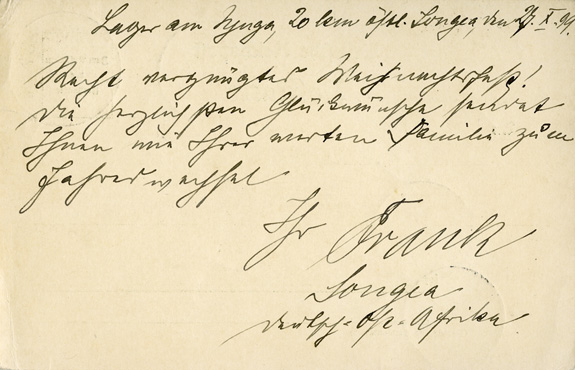 Lager am Njuga, 20 km östl. Songea, den 27. X. 99.
Recht vergnügtes Weihnachtsfest!
Die herzlichsten Glückwünsche sendet
Ihnen und Ihrer werten Familie zum
Jahreswechsel
Ihr Frank
Songea
Deutsch-Ost-Afrika.